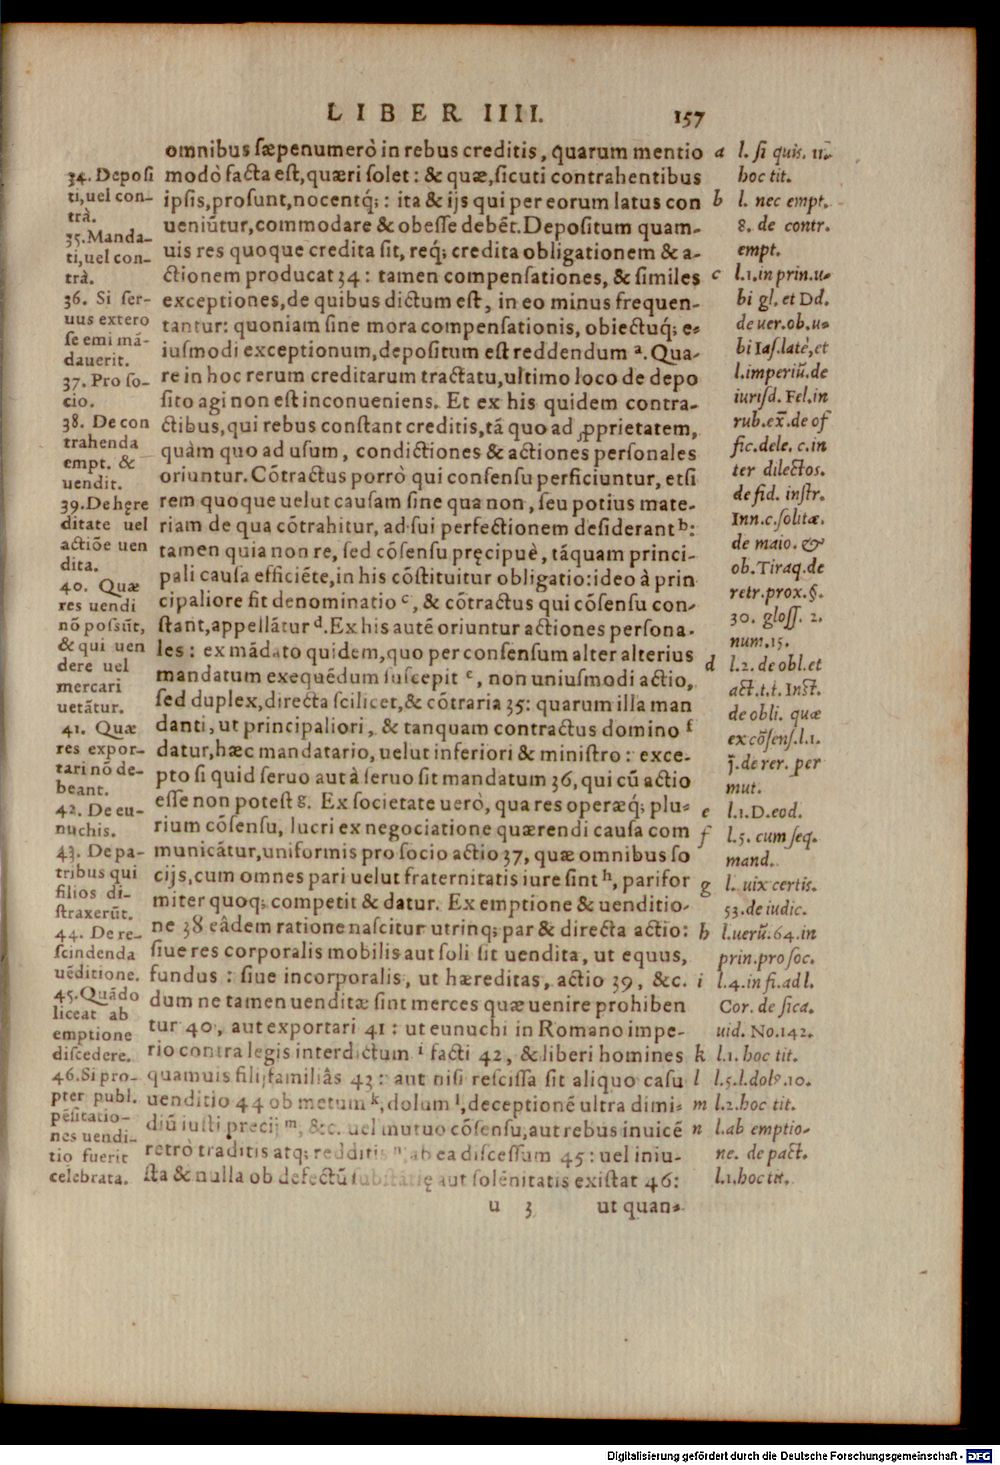 LIBER IIII. 157
omnibus sæpenumerò in rebus creditis, quarum mentio
modò facta est, quæri solet: & quæ, sicuti contrahentibus
ipsis, prosunt, nocentq́;: ita & ijs qui per eorum latus con
ueniũtur, commodare & obesse debẽt. Depositum quam-
uis res quoque credita sit, req́; credita obligationem & a-
ctionem producat 34: tamen compensationes, & similes
exceptiones, de quibus dictum est, in eo minus frequen-
tantur: quoniam sine mora compensationis, obiectuq́; e-
iusmodi exceptionum, depositum est reddendum a. Qua-
re in hoc rerum creditarum tractatu, ultimo loco de depo
sito agi non est inconueniens. Et ex his quidem contra-
ctibus, qui rebus constant creditis, tã quo ad ꝓprietatem,
quàm quo ad usum, condictiones & actiones personales
oriuntur. Cõtractus porrò qui consensu perficiuntur, etsi
rem quoque uelut causam sine qua non, seu potius mate-
riam de qua cõtrahitur, ad sui perfectionem desiderant b:
tamen quia non re, sed cõsensu pręcipuè, tãquam princi-
pali causa efficiẽte, in his cõstituitur obligatio: ideo à prin
cipaliore fit denominatio c, & cõtractus qui cõsensu con-
stant, appellãtur d. Ex his autẽ oriuntur actiones persona-
les: ex mãdato quidem, quo per consensum alter alterius
mandatum exequẽdum suscepit e, non uniusmodi actio,
sed duplex, directa scilicet, & cõtraria 35: quarum illa man
danti, ut principaliori, & tanquam contractus domino f
datur, hæc mandatario, uelut inferiori & ministro: exce-
pto si quid seruo aut à seruo sit mandatum 36, qui cũ actio
esse non potest g. Ex societate uerò, qua res operæq́; plu-
rium cõsensu, lucri ex negociatione quærendi causa com
municãtur, uniformis pro socio actio 37, quæ omnibus so
cijs, cum omnes pari uelut fraternitatis iure sint h, parifor
miter quoq; competit & datur. Ex emptione & uenditio-
ne 38 eâdem ratione nascitur utrinq; par & directa actio:
siue res corporalis mobilis aut soli sit uendita, ut equus,
fundus: siue incorporalis, ut hæreditas, actio 39, &c.
dum ne tamen uenditæ sint merces quæ uenire prohiben
tur 40, aut exportari 41: ut eunuchi in Romano impe-
rio contra legis interdictum i facti 42, & liberi homines
quamuis filijfamiliâs 43: aut nisi rescissa sit aliquo casu
uenditio 44 ob metum k, dolum l, deceptionẽ ultra dimi-
diũ iusti precij m, &c. uel mutuo cõsensu, aut rebus inuicẽ
retrò traditis atq; redditis n, ab ea discessum 45: uel iniu-
sta & nulla ob defectũ substãtię aut solẽnitatis existat 46:
u 3 ut quan-
34. Deposi
ti, uel con-
trà.
35. Manda-
ti, uel con-
trà.
36. Si ser-
uus extero
se emi mã-
dauerit.
37. Pro so-
cio.
38. De con
trahenda
empt. &
uendit.
39. De hęre
ditate uel
actiõe uen
dita.
40. Quæ
res uendi
nõ possũt,
& qui uen
dere uel
mercari
uetãtur.
41. Quæ
res expor-
tari nõ de-
beant.
42. De eu-
nuchis.
43. De pa-
tribus qui
filios di-
straxerũt.
44. De re-
scindenda
uẽditione.
45. Quãdo
liceat ab
emptione
discedere.
46. Si pro-
pter publ.
pẽsitatio-
nes uendi-
tio fuerit
celebrata.
a l. si quis. 11.
hoc tit.
b l. nec empt.
8. de contr.
empt.
c l.1. in prin. u-
bi gl. et Dd.
de uer. ob. u-
bi Ias. latè, et
l. imperiũ. de
iurisd. Fel. in
rub. ex̃. de of
fic. dele. c. in
ter dilectos.
de fid. instr.
Inn. c. solitæ.
de maio. &
ob. Tiraq. de
retr. prox. §.
30. gloss. 2.
num. 15.
d l.2. de obl. et
act. t. t. Inst.
de obli. quæ
ex cõsens. l.1.
j̃. de rer. per
mut.
e l.1. D. eod.
f l.5. cum seq.
mand.
g l. uix certis.
53. de iudic.
h l. uerũ. 64. in
prin. pro soc.
i l.4. in fi. ad l.
Cor. de sica.
uid. No. 142.
k l.1. hoc tit.
l l.5. l. dolꝰ. 10.
m l.2. hoc tit.
n l. ab emptio-
ne. de pact.
l.1. hoc tit.
Digitalisierung gefördert durch die Deutsche Forschungsgemeinschaft - DFG